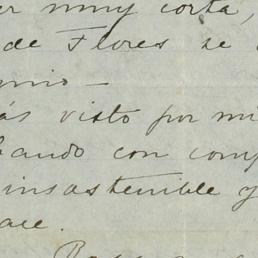 er muy corta,
de Flores se
ás visto por mi
bando con comp
insostenible y
ace.